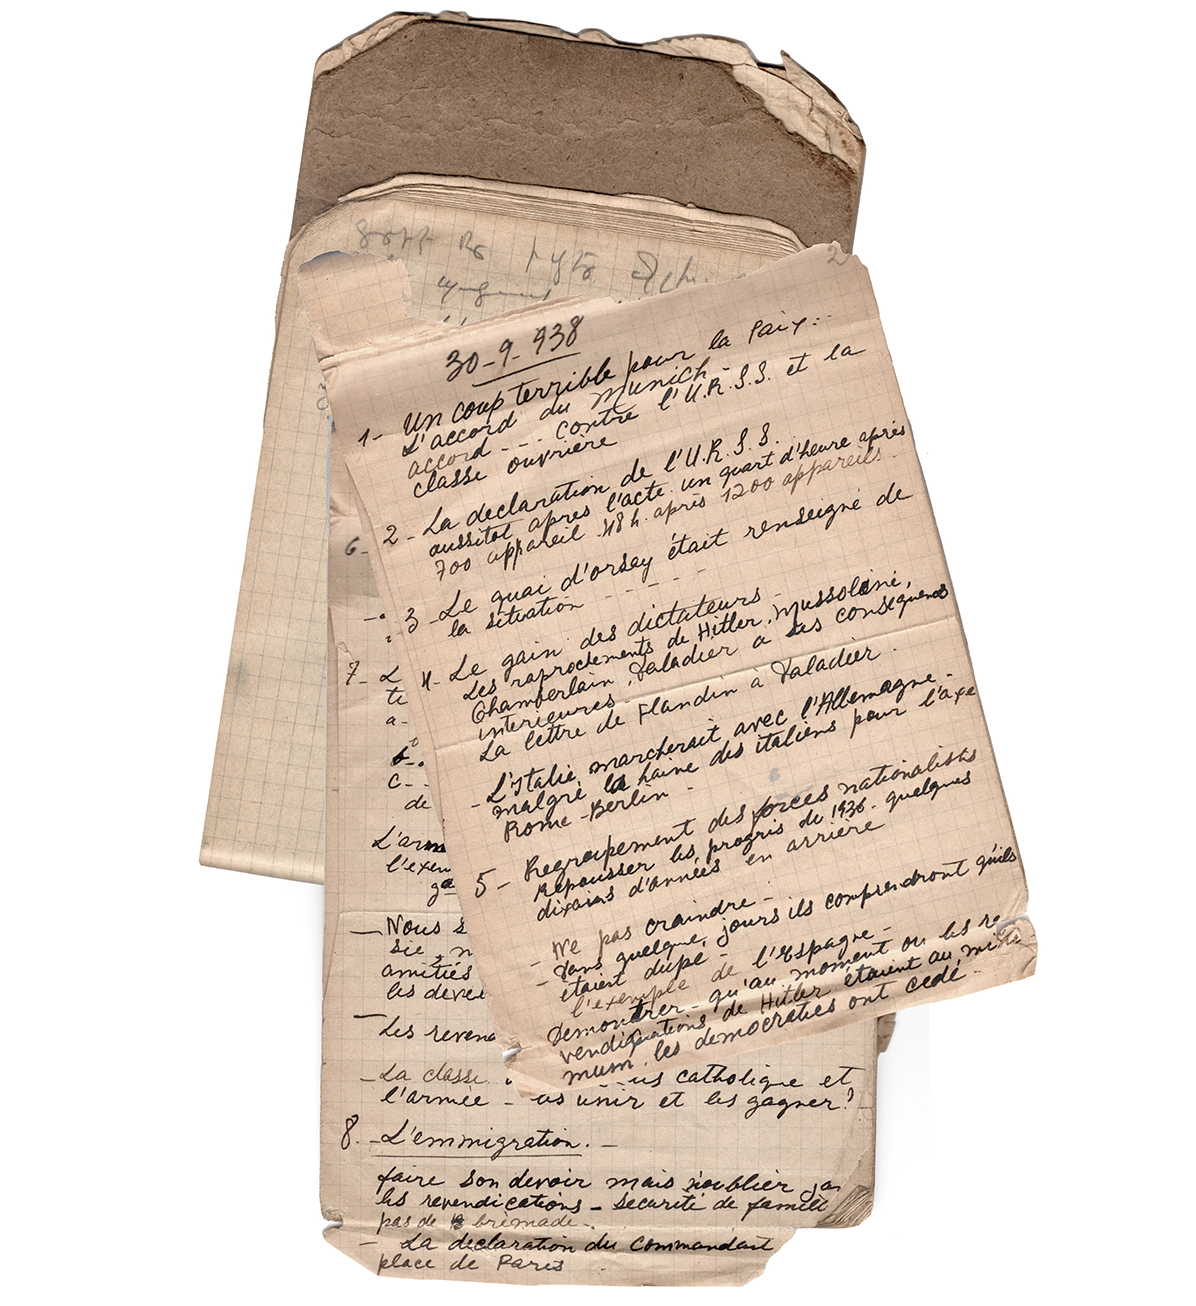 2
30-9-938
1- Un coup terrible pour la Paix:-
L'accord du Munich-
accord --- contre l'U.R.S.S. et la
classe ouvrière
2- La declaration de l'U.R.S.S.
aussitot après l'acte un quart d'heure après
700 appareil 48 h. après 1200 appareils-
3- Le quai d'orsay était renseigné de
la situation -----
4- Le gain des dictateurs-
Les raprochements de Hitler, Mussolini,
Chamberlain, Daladier a ses consequences
interieures.
La lettre de Flandin à Daladier.
- L'Italie marcherait avec l'Allemagne-
malgré la haine des italiens pour l'axe
Rome-Berlin-
5- Regroupement des forces nationalists
Repousser les progrés du 1936- quelques
dixains d'années en arrière
- Ne pas craindre-
- Dans quelque, jours ils comprendront qu'ils
étaient dupé-
l'exemple de l'Espagne-
Demontrer- qu'au moment ou les re
vendiquations de Hitler étaient au mini
mum. les democraties ont cedé.
6-
7- L
te
a-
b-
c-
de
L'arm
l'exem
ga
- Nous s
sie, n
amitiés
les devee
- Les revend
- La classe us catholique et
l'armée - us unir et les gagner?
8. - L'emmigration.-
faire son devoir mais n'oublier ja
les revendications- securité de famill
pas de brimade-
- La declaration du Commandant
place de Paris